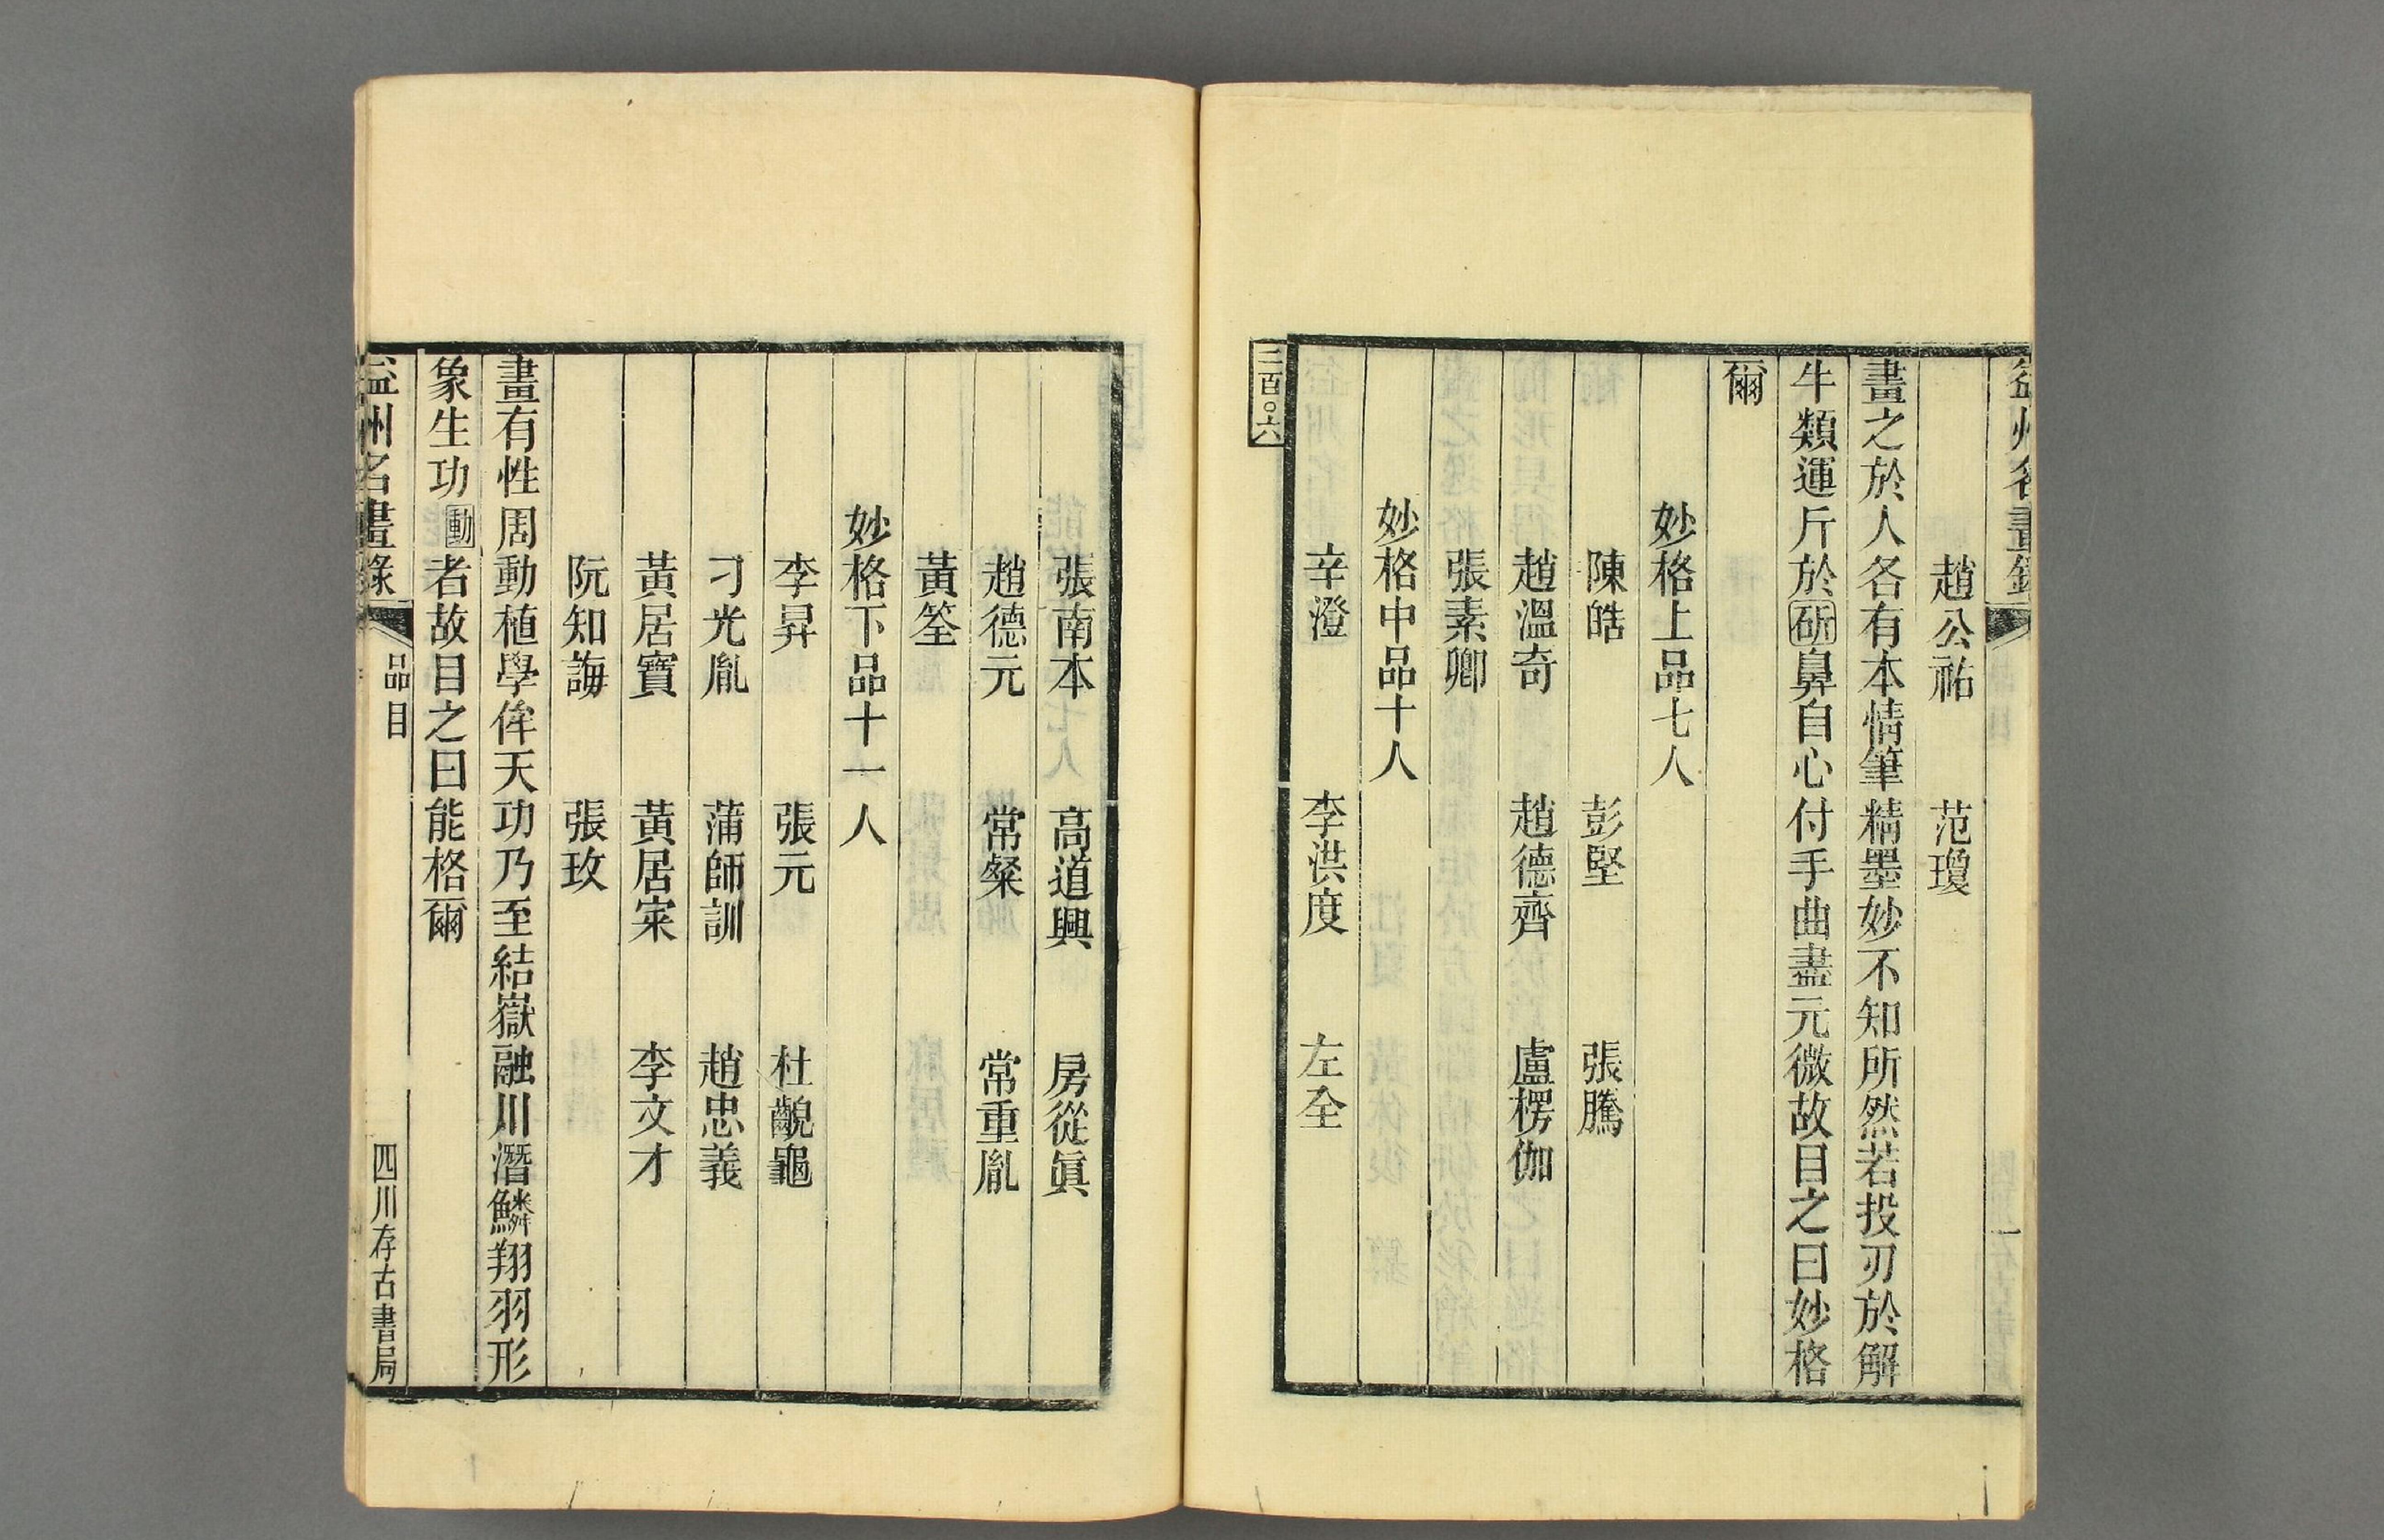 益州名畫錄
一
趙公祐 范瓊
畫之於人各有本情筆精墨妙不知所然若投刃於解
牛類運斤於斫鼻自心付手曲盡元微故目之曰妙格
爾
妙格上品七人
陳皓 彭堅 張騰
趙溫奇 趙德齊 盧楞伽
張素卿
妙格中品十人
辛澄 李洪度 左全
二百〇六
張南本 高道興 房從眞
趙德元 常粲 常重胤
黃筌
妙格下品十一人
李昇 張元 杜齯龜
刁光胤 蒲師訓 趙忠義
黃居寶 黃居寀 李文才
阮知誨 張玫
畫有性周動植學侔天功乃至結嶽融川潛鱗翔羽形
象生功動者故目之曰能格爾
益州名畫錄 品目 四川存古書局